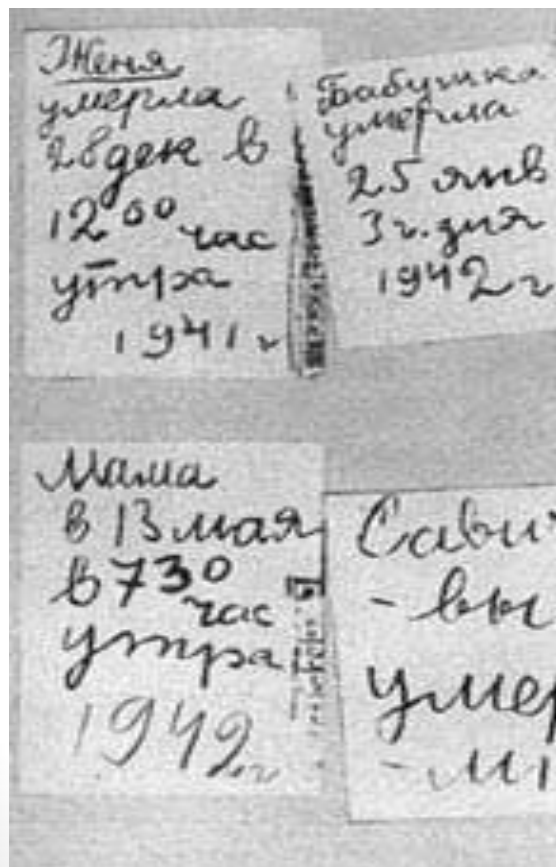 Женя
умерла
28 дек в
12 00 час
утра
1941 г
Бабушка
умерла
25 янв
3 ч. дня
1942 г
Мама
в 13 мая
в 7 30
час
утра
1942 г
Сави
- вы
умер